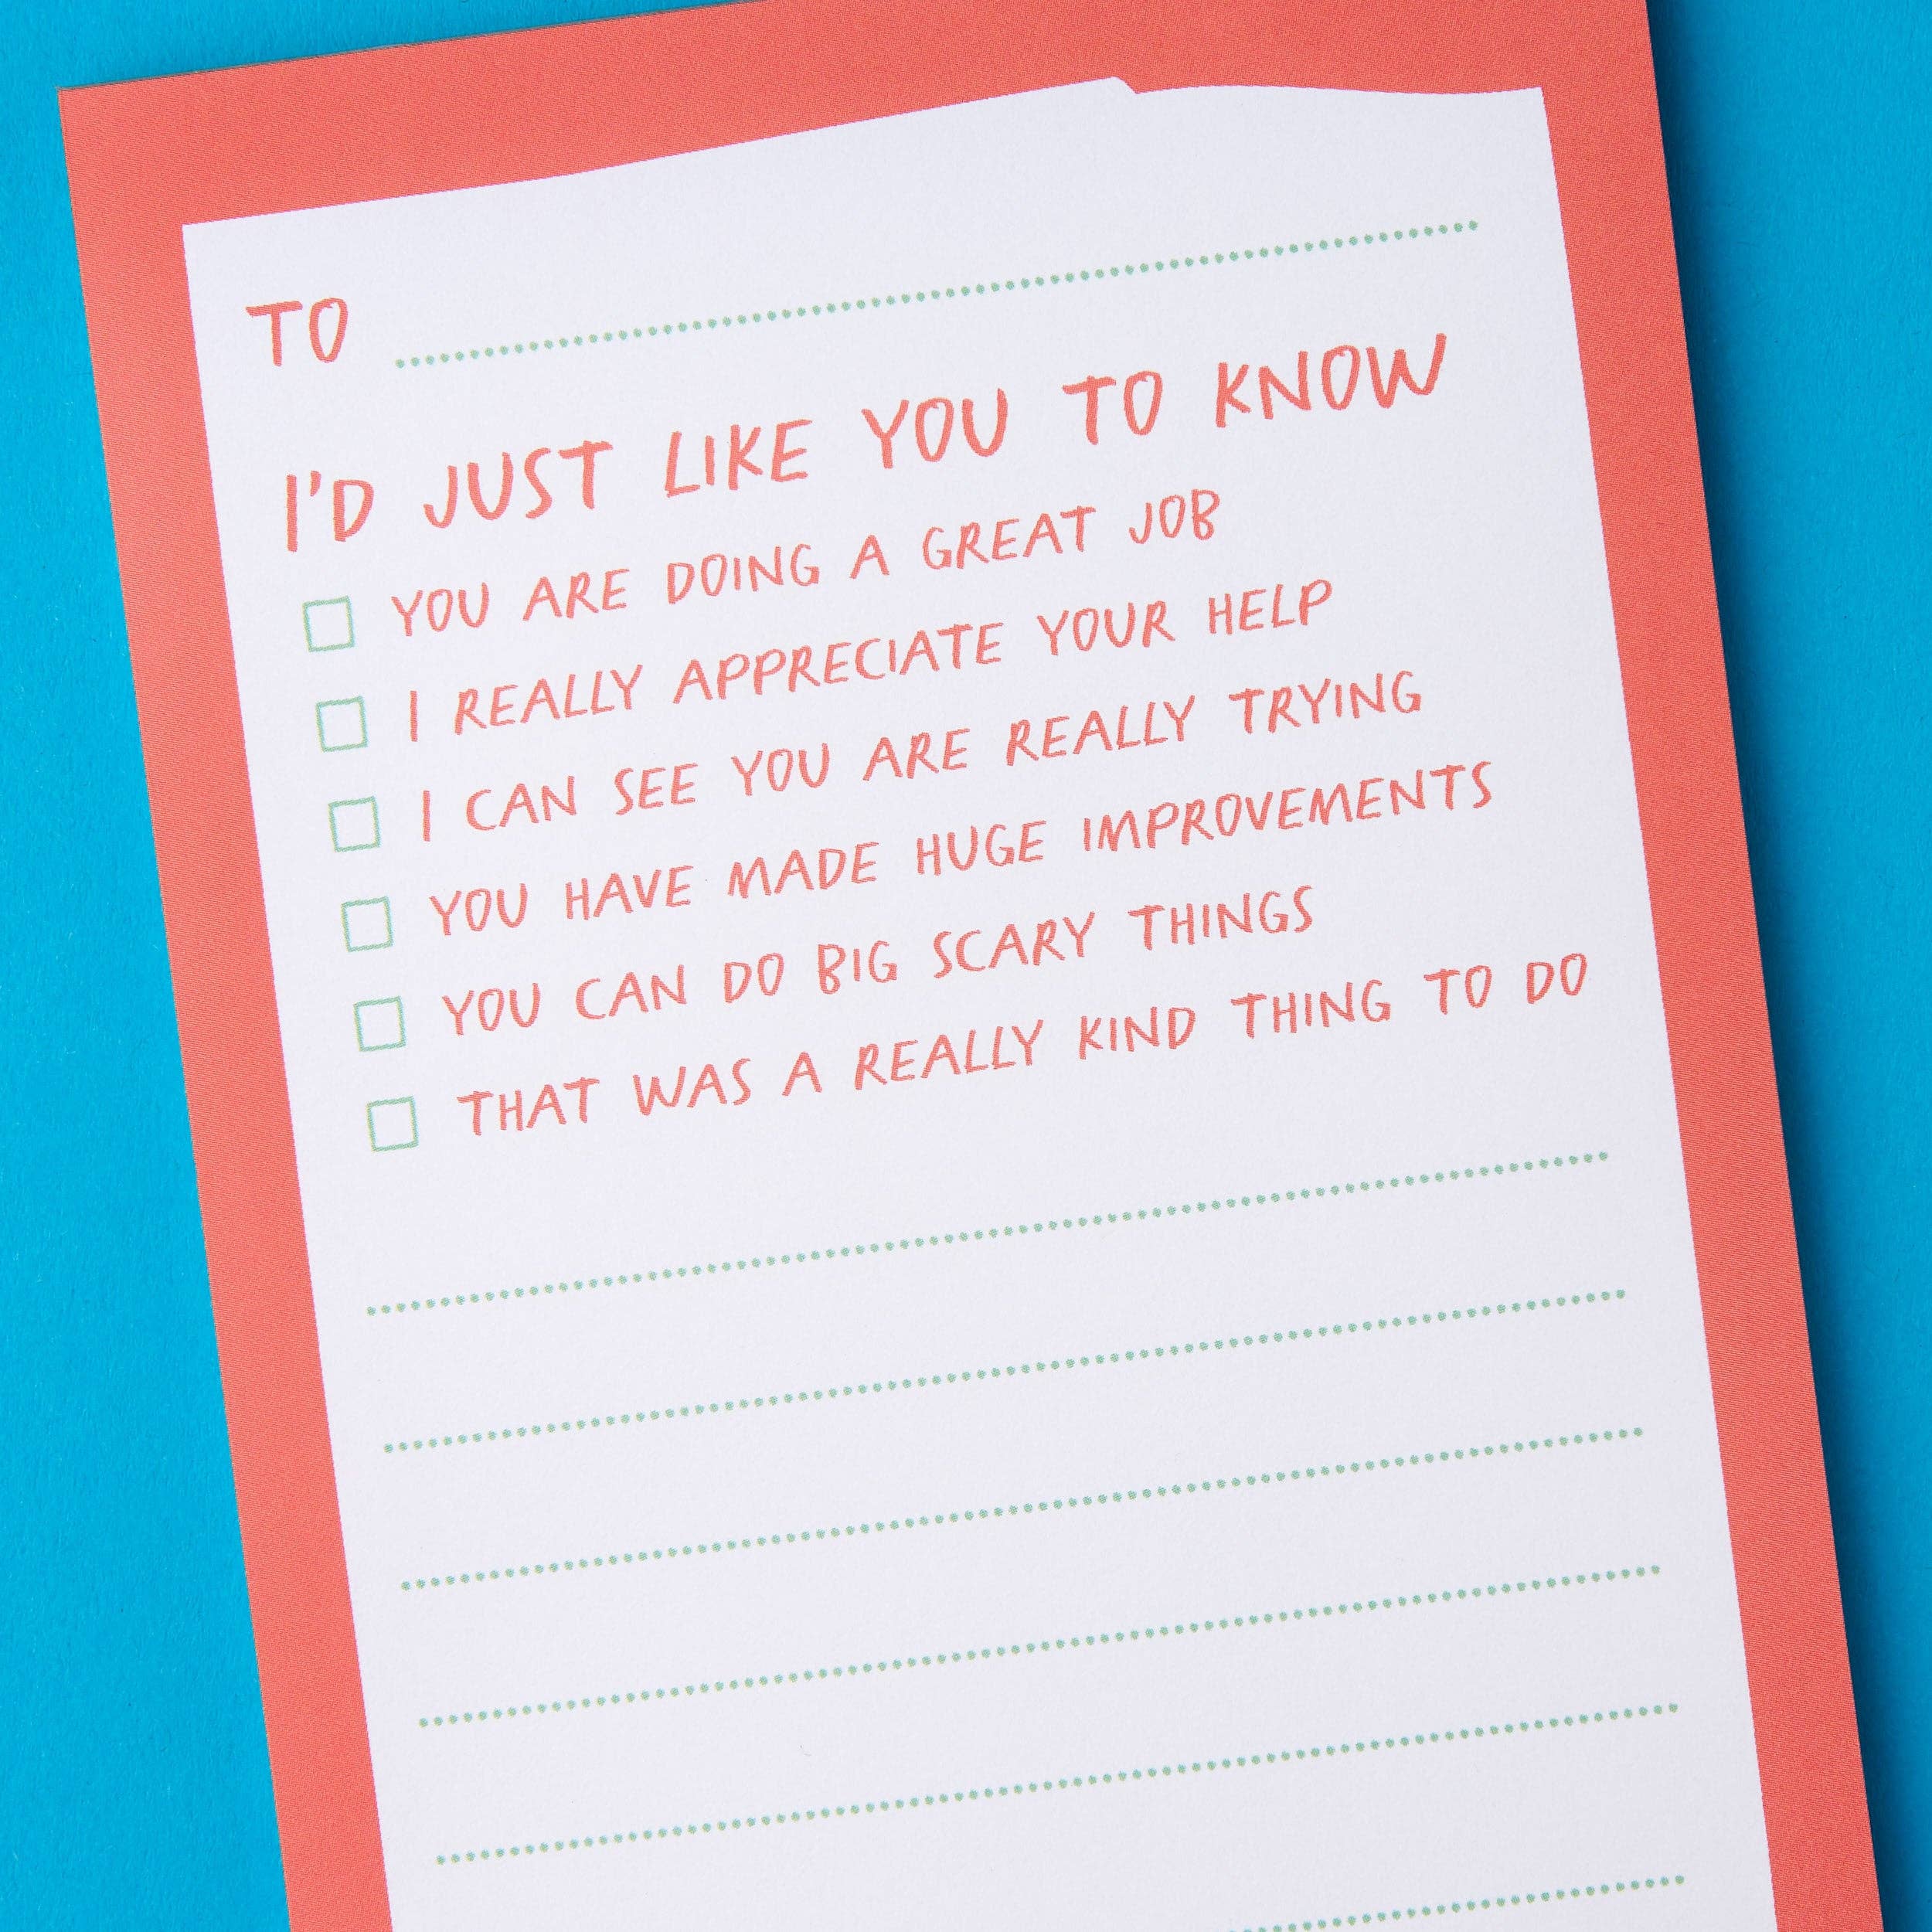 TO
I'D JUST LIKE YOU TO KNOW
YOU ARE DOING A GREAT JOB
I REALLY APPRECIATE YOUR HELP
I CAN SEE YOU ARE REALLY TRYING
YOU HAVE MADE HUGE IMPROVEMENTS
YOU CAN DO BIG SCARY THINGS
THAT WAS A REALLY KIND THING TO DO